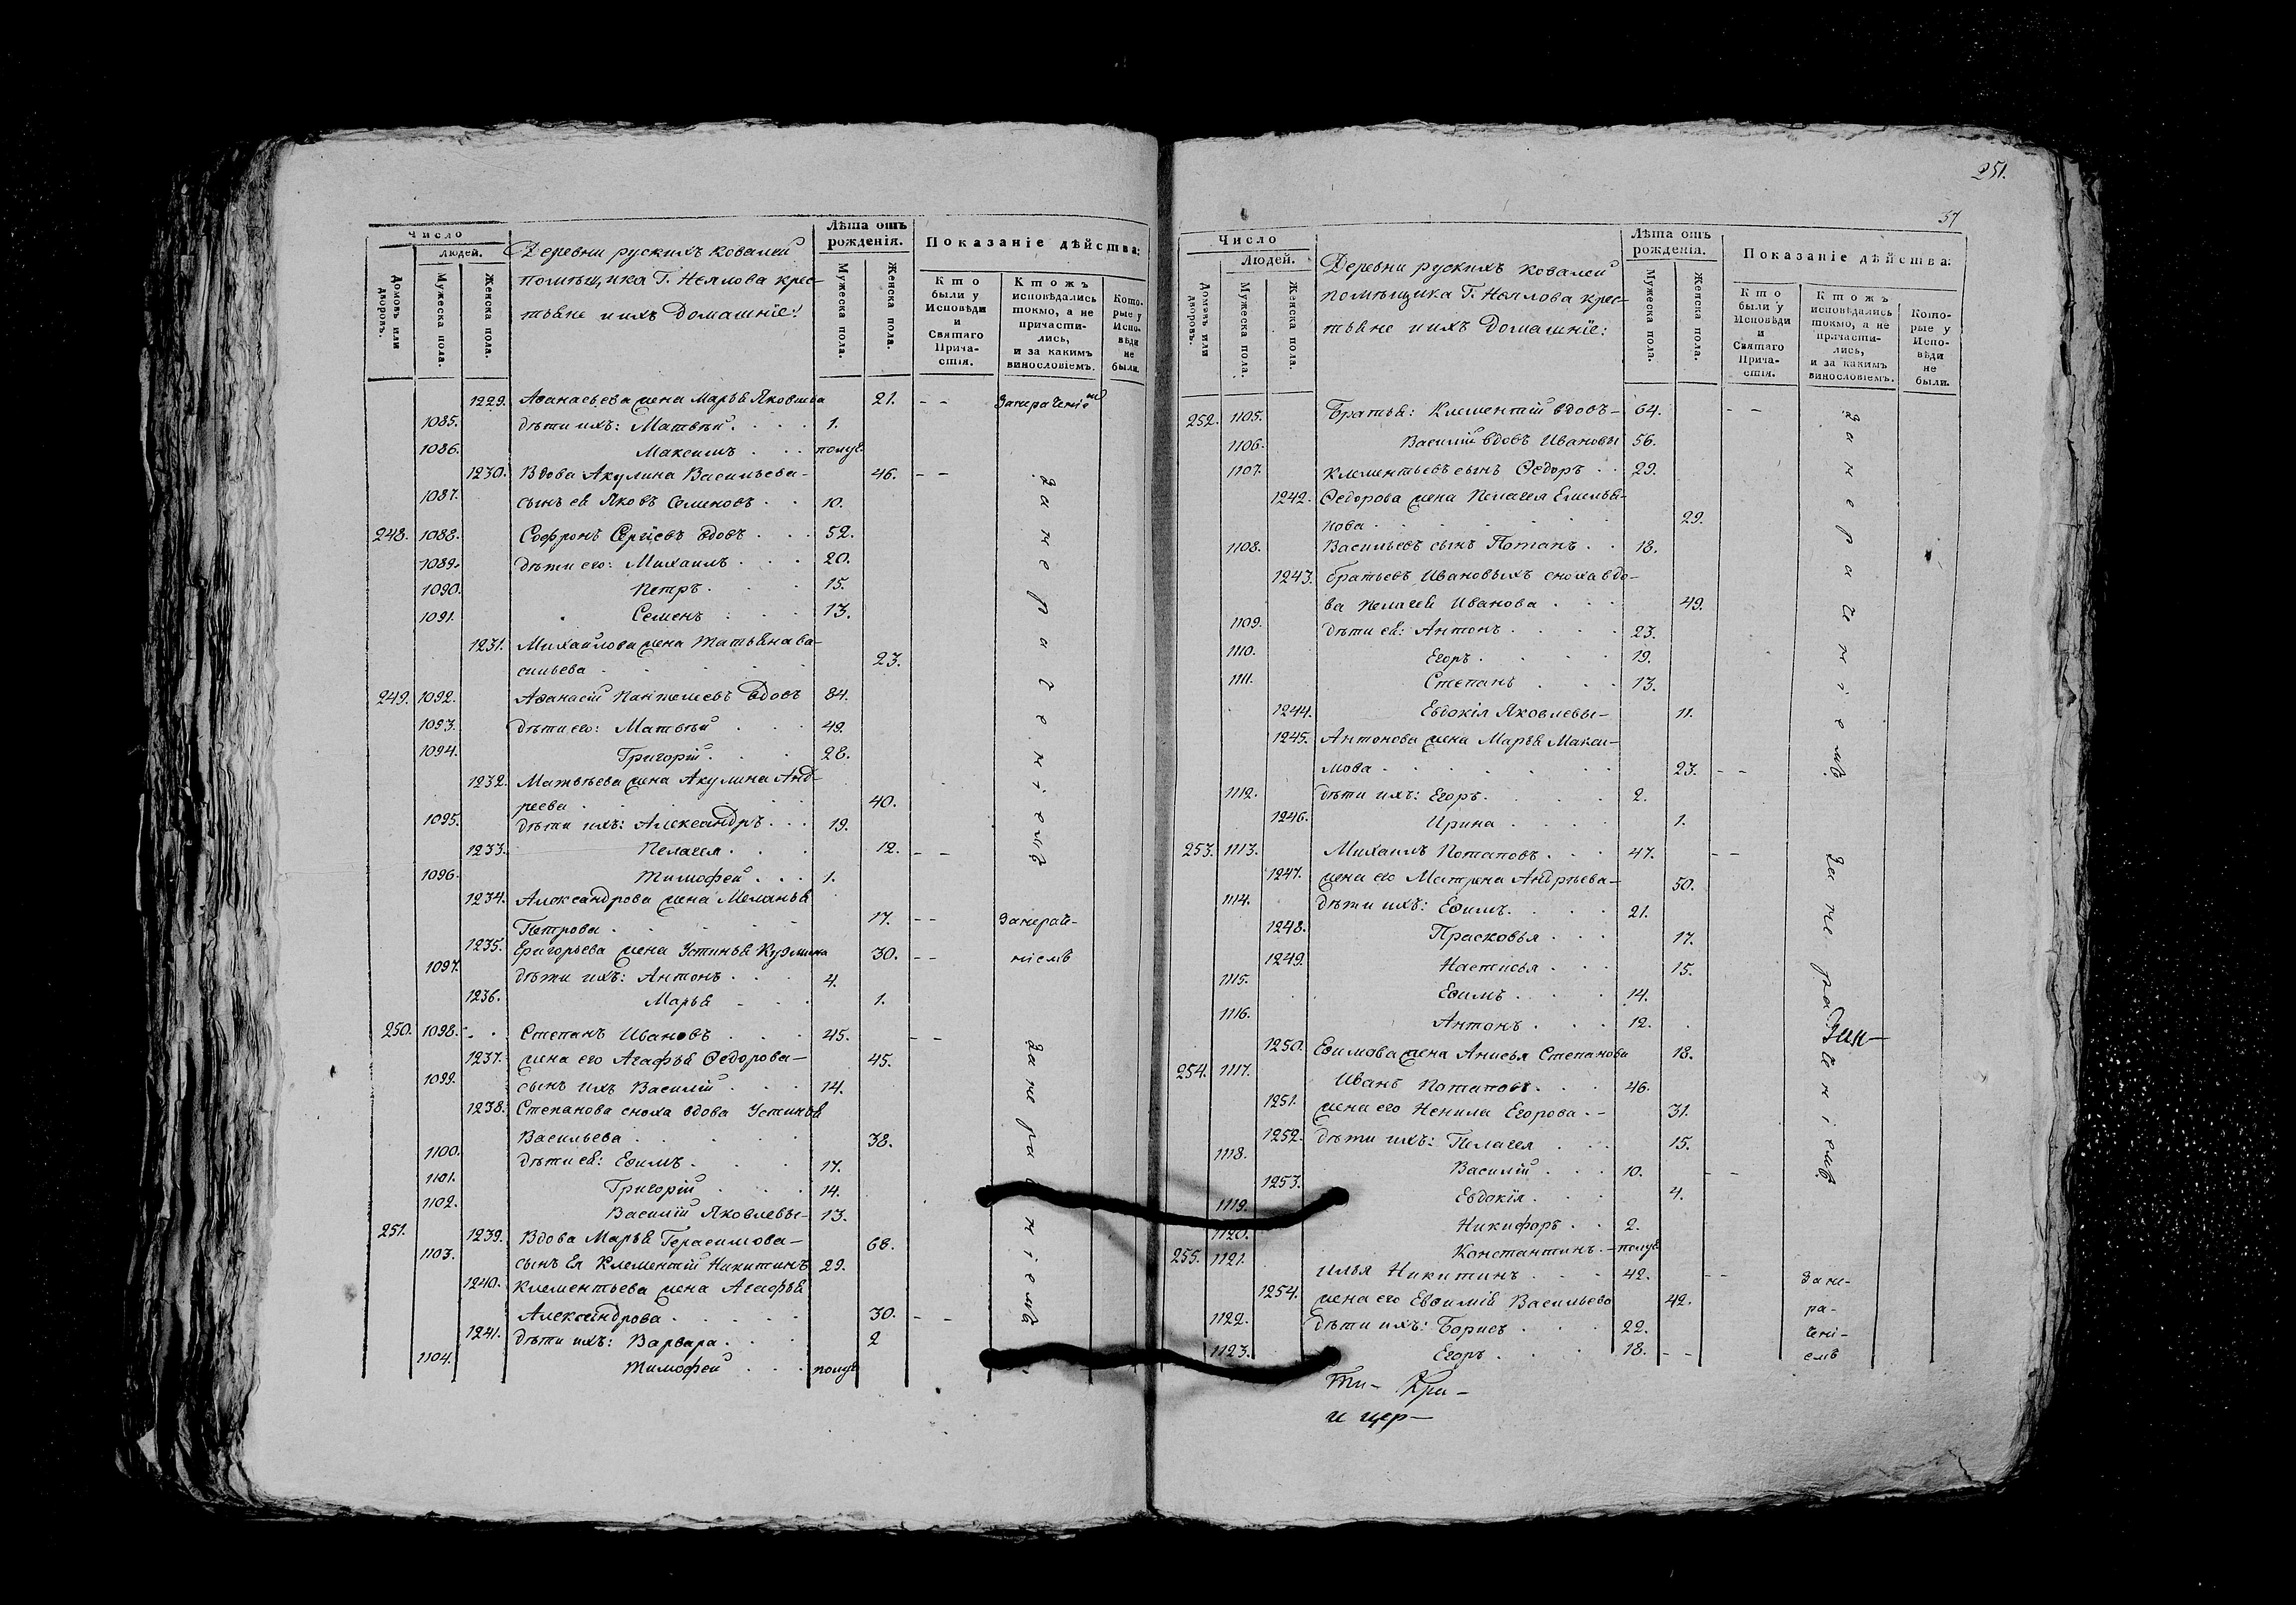 Число
Людей.
Домовъ или дворовъ.
Мужеска пола.
Женска пола.
Деревни рускихъ ковалей
помѣщика Г. Неялова крес-
тьяне и ихъ домашніе:
Лѣта отъ рожденія.
Мужеска пола.
Женска пола.
Показаніе дѣйства:
Кто были у Исповѣди и Святаго Причастія.
Ктожъ исповѣдались токмо, а не причастились, и за какимъ винословіемъ.
Которые у Исповѣди не были.
1229. Аѳанасьева жена Марья Яковлева 21. - - Занераченіе
1085. дѣти ихъ: Матвѣй . . . . 1.
1086. Максимъ . . . полуг.
1230. Вдова Акулина Васильева - 46. - - занераченіемъ
1087. сынъ ея Яковъ Семеновъ . . 10.
248. 1088. Софронъ Сергіевъ вдовъ . . . 52.
1089. дѣти его: Михаилъ . . . 20.
1090. Петръ . . . 15.
1091. Семенъ . . . 13.
1231. Михайлова жена Татьяна Ва-
сильева . . . . . 23.
249. 1092. Аѳанасій Пантелеевъ вдовъ 84.
1093. дѣти его: Матвѣй . . . 49.
1094. Григорій . . . 28.
1232. Матвѣева жена Акулина Анд-
реева . . . . . 40.
1095. дѣти ихъ: Александръ . . . 19.
1233. Пелагея . . . 12. - -
1096. Тимофей . . . 1.
1234. Александрова жена Меланья
Петрова . . . . . 17. - - Занерач-
1235. Григорьева жена Устинья Кузмина 30. - - ніемъ
1097. дѣти ихъ: Антонъ . . . 4.
1236. Марья . . . 1.
250. 1098. . . Степанъ Ивановъ . . . 45. - - занераченіемъ
1237. жена его Агафья Ѳедорова - 45.
1099. сынъ ихъ Василій . . . 14.
1238. Степанова сноха вдова Устинья
Васильева . . . . . 38.
1100. дѣти ея: Ефимъ . . . 17.
1101. Григорій . . . 14.
1102. Василій Яковлевы - 13.
251. 1239. Вдова Марья Герасимова - 68.
1103. сынъ Ея Клементій Никитинъ 29.
1240. Клементьева жена Агафья
Александрова . . . . . 30. - -
1241. дѣти ихъ: Варвара . . . 2
1104. Тимофей . . . полуг.
251.
57
Число
Людей.
Домовъ или дворовъ.
Мужеска пола.
Женска пола.
Деревни рускихъ ковалей
помѣщика Г. Неялова крес-
тьяне и ихъ домашніе:
Лѣта отъ рожденія.
Мужеска пола.
Женска пола.
Показаніе дѣйства:
Кто были у Исповѣди и Святаго Причастія.
Ктожъ исповѣдались токмо, а не причастились, и за какимъ винословіемъ.
Которые у Исповѣди не были.
252. 1105. Братья: Клементій вдовъ - 64. - - занераченіемъ
1106. Василій вдовъ Ивановы 56.
1107. Клементьевъ сынъ Ѳедоръ . . 29.
1242. Ѳедорова жена Пелагея Емелья-
нова . . . . . 29.
1108. Васильевъ сынъ Потапъ . . 18.
1243. Братьевъ Ивановыхъ сноха вдо-
ва Пелагея Иванова . . . 49.
1109. дѣти ея: Антонъ . . . . 23.
1110. Егоръ . . . . 19.
1111. Степанъ . . . 13.
1244. Евдокія Яковлевы - 11.
1245. Антонова жена Марья Макси-
мова . . . . . 23. - -
1112. дѣти ихъ: Егоръ . . . . 2.
1246. Ирина . . . . 1.
253. 1113. Михаилъ Потаповъ . . . 47. - - занераченіемъ
1247. жена его Матрена Андрѣева - 50.
1114. дѣти ихъ: Ефимъ . . . . 21.
1248. Прасковья . . . 17.
1249. Настасья . . . 15.
1115. Ефимъ . . . . 14.
1116. Антонъ . . . 12.
1250. Ефимова жена Анисья Степанова 18.
254. 1117. Иванъ Потаповъ . . . 46.
1251. жена его Ненила Егорова . - 31.
1252. дѣти ихъ: Пелагея . . . 15.
1118. Василій . . . 10. - -
1253. Евдокія . . . 4.
1119. Никифоръ . . 2.
1120. Константинъ . - полуг.
255. 1121. Илья Никитинъ . . . 42. - - Зане-
1254. жена его Евфимія Васильева 42. ра-
1122. дѣти ихъ: Борисъ . . . 22. чені-
1123. Егоръ . . . 18. - - емъ
Ти- Кри-
и цер-